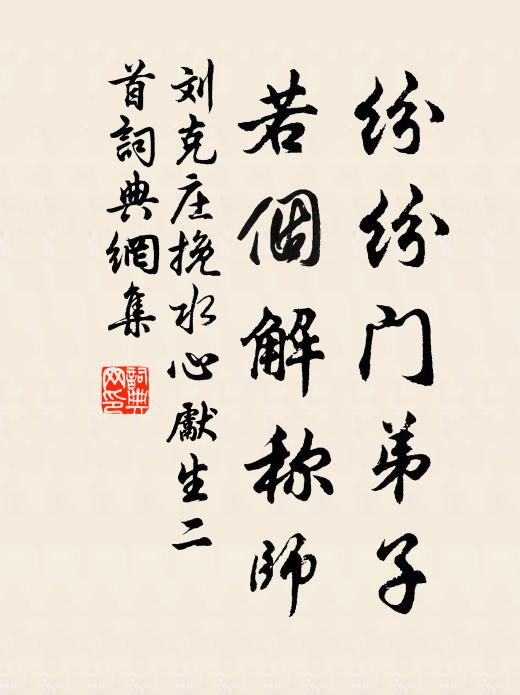 纷纷门弟子
若個解称師
刘克庄挽水心獻生二
首詞典網集
詞典
网印